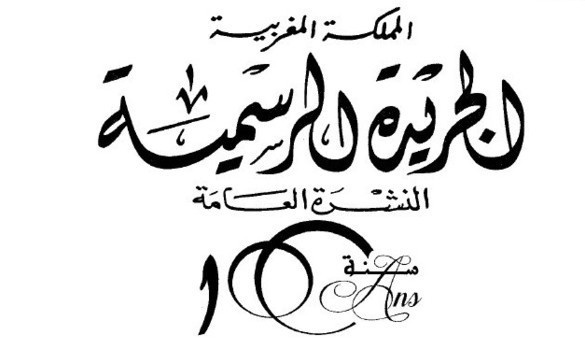 المملكة المغربية
الجريدة الرسمية
النشرة العامة
100 سنة
Ans